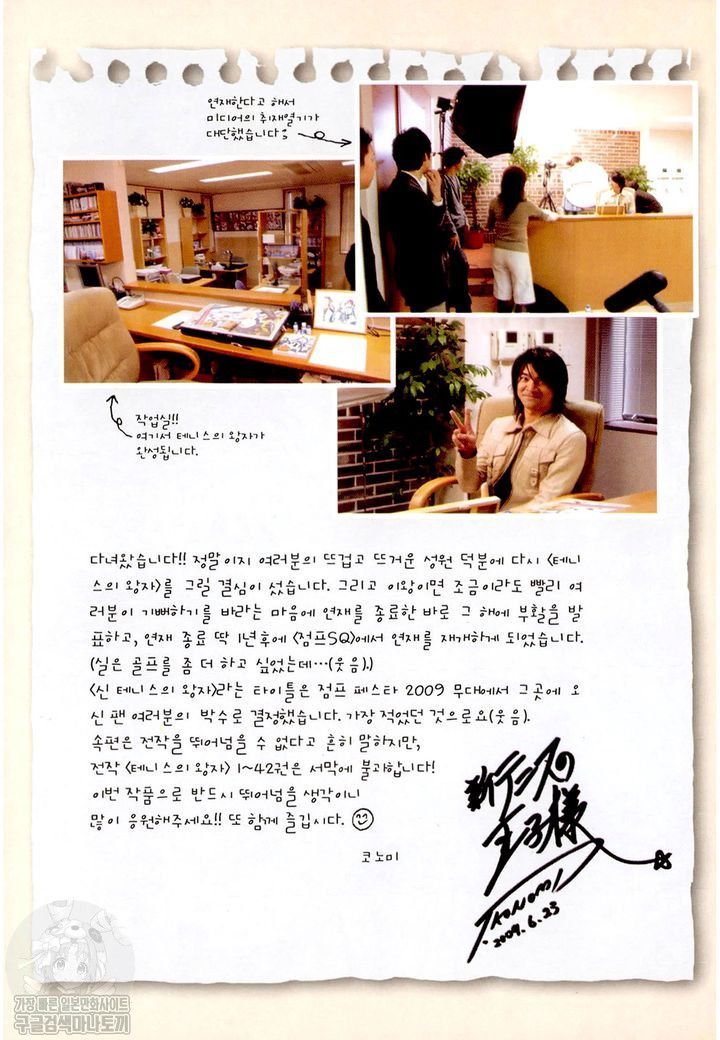 연재한다고 해서
미디어의 취재열기가
대단했습니다
작업실!!
여기서 테니스의 왕자가
완성됩니다.
다녀왔습니다!! 정말이지 여러분의 뜨겁고 뜨거운 성원 덕분에 다시 <테니
스의 왕자>를 그릴 결심이 섰습니다. 그리고 이왕이면 조금이라도 빨리 여
러분이 기뻐하기를 바라는 마음에 연재를 종료한 바로 그 해에 부활을 발
표하고, 연재 종료 딱 1년후에 <점프SQ>에서 연재를 재개하게 되었습니다.
(실은 골프를 좀 더 하고 싶었는데…(웃음).)
<신 테니스의 왕자>라는 타이틀은 점프 페스타 2009 무대에서 그곳에 오
신 팬 여러분의 박수로 결정했습니다. 가장 적었던 것으로요(웃음).
속편은 전작을 뛰어넘을 수 없다고 흔히 말하지만,
전작 <테니스의 왕자> 1~42권은 서막에 불과합니다!
이번 작품으로 반드시 뛰어넘을 생각이니
많이 응원해주세요!! 또 함께 즐깁시다.
코노미
新テニスの
王子様
T.KONOMI
2009.6.23
가장 빠른 일본만화사이트
구글검색마나토끼